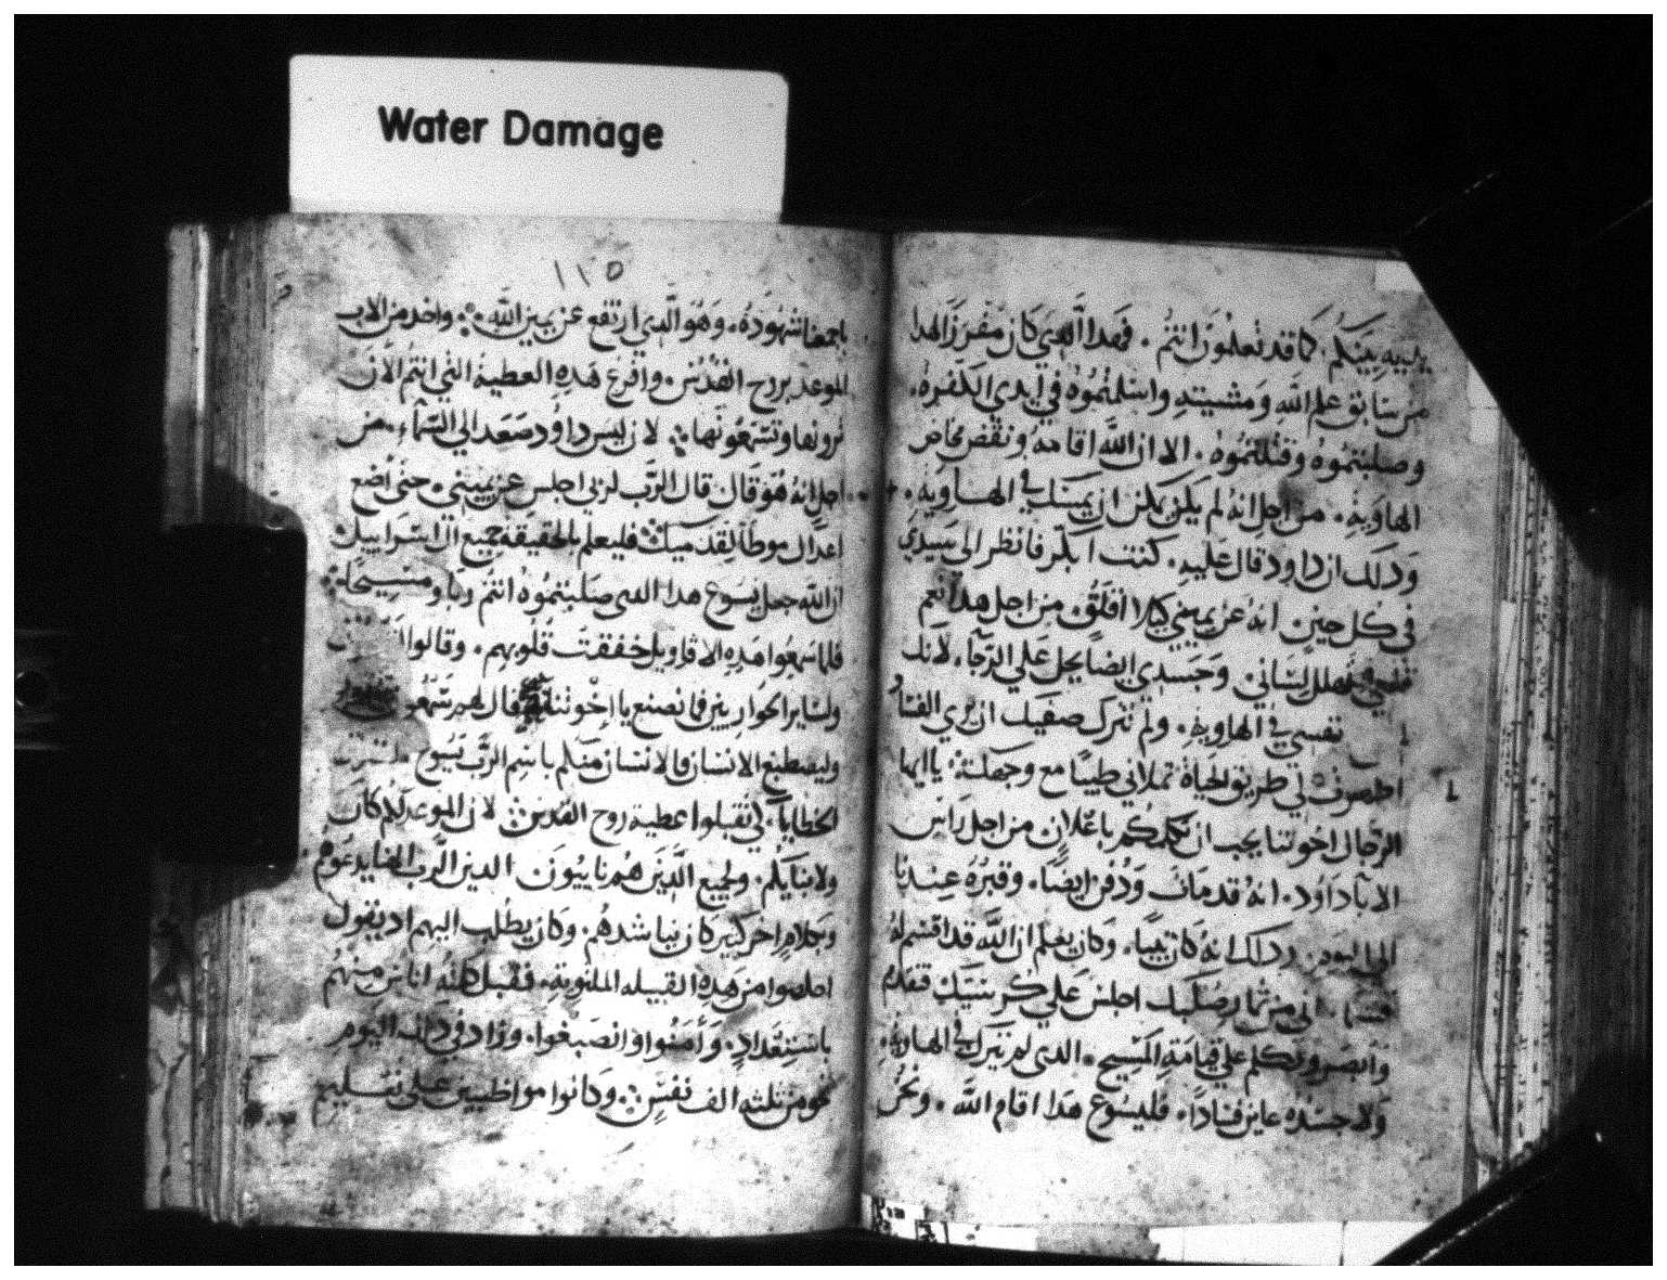 Water Damage
يديه بينكم. كما قد تعلمون انتم. فهدا الدي كان مفرزا لهدا
من سابق علم الله ومشيته واسلمتموه في ايدى الكفره.
وصلبتموه وقتلتموه. الا ان الله اقامه ونقض مخاض
الهاويه. من اجل انه لم يكن يمكن ان يمسك في الهاويه.
ودلك ان داود قال عليه. كنت ابكر فانظر الى سيدي
في كل حين انه عن يميني كيلا اقلق. من اجل هدا نعم
قلبي وتهلل لساني وجسدي ايضا يحل على الرجآ. لانك
نفسي في الهاويه. ولم تترك صفيك ان يري الفساد
لي طريق الحياة تملاني طيبا مع وجهك يا ايها
الرجال اخوتنا يجب ان نكلمكم باعلان من اجل راس
الابآ داود. انه قد مات ودفن ايضا. وقبره عندنا
الى اليوم. ودلك انه كان نبيا. وكان يعلم ان الله قد اقسم له
قسما اني من ثمار صلبك اجلس على كرسيك فتقدم
وابصر وتكلم علي قيامة المسيح. الدى لم يترك في الهاويه
ولا جسده عاين فسادا. فليسوع هدا اقام الله. ونحن
١١٥
باجمعنا شهوده. وهو الدي ارتفع عن يمين الله. واخد من الاب
الموعد بروح القدس. وافرغ هده العطية التي انتم الان
ترونها وتسمعونها. لان ليس داود صعد الي السمآء. من
اجل انه هو قال قال الرب لربي اجلس عن يميني. حتى اضع
اعداك موطأ لقدميك فليعلم بالحقيقة جميع ال اسراييل
ان الله جعل يسوع هدا الدى صلبتموه انتم ربا ومسيحا.
فلما سمعوا هده الاقاويل خفقت قلوبهم. وقالوا
ولساير الحواريين فما نصنع يا اخوتنا قال لهم شمعون
وليصطبغ الانسان فالانسان منكم باسم الرب يسوع
الخطايا. لكي تقبلوا عطية روح القدس لان الموعد لكم كان
ولابنايكم. ولجميع الدين هم ناييون الدين الرب ايضا يدعوهم
وبكلام اخر كثير كان يناشدهم. وكان يطلب اليهم اد يقول
اخلصوا من هده القبيله الملتويه. فقبل كلمته اناس منهم
باستعداد. وأمنوا وانصبغوا. وزاد في دلك اليوم
نحو من ثلثه الف نفس. وكانوا مواظبين على تعليم